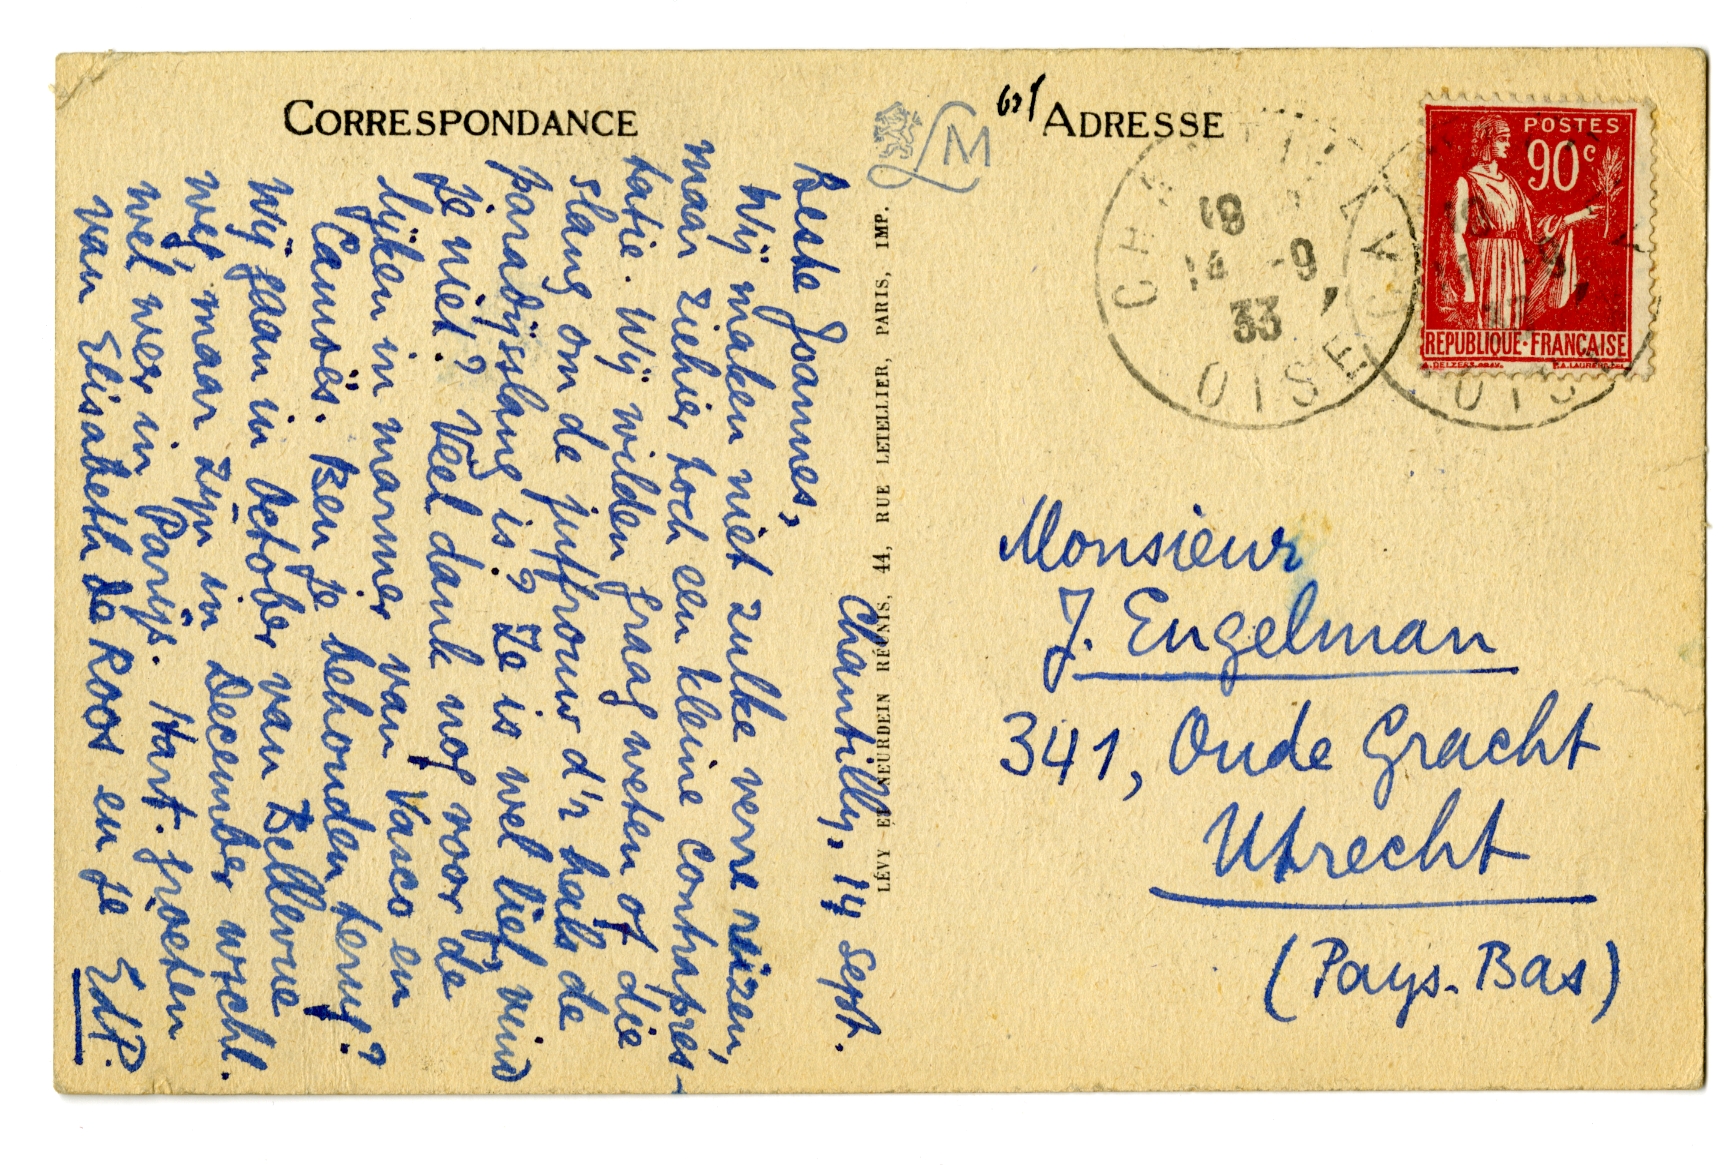 CORRESPONDANCE
Chantilly, 14 Sept.
Beste Joannes,
Wij maken niet zulke verre reizen,
maar ziehier toch een kleine contrapres-
tatie. Wij wilden graag weten of die
slang om de juffrouw d'r hals de
paradijsslang is? Ze is wel lief, vind
je niet? Veel dank nog voor de
lijken in marmer van Vasco en
Camoës. Ben je behouden terug?
Wij gaan in October van Bellevue
weg maar zijn in December wschl.
wel weer in Parijs. Hart. groeten
van Elisabeth de Roos en je EdP.
LÉVY ET NEURDEIN RÉUNIS, 44, RUE LETELLIER, PARIS, IMP.
LM
ADRESSE
CHANTILLY
18
14 -9
33
OISE
POSTES
90c
REPUBLIQUE·FRANÇAISE
Monsieur
J. Engelman
341, Oude Gracht
Utrecht
(Pays-Bas)